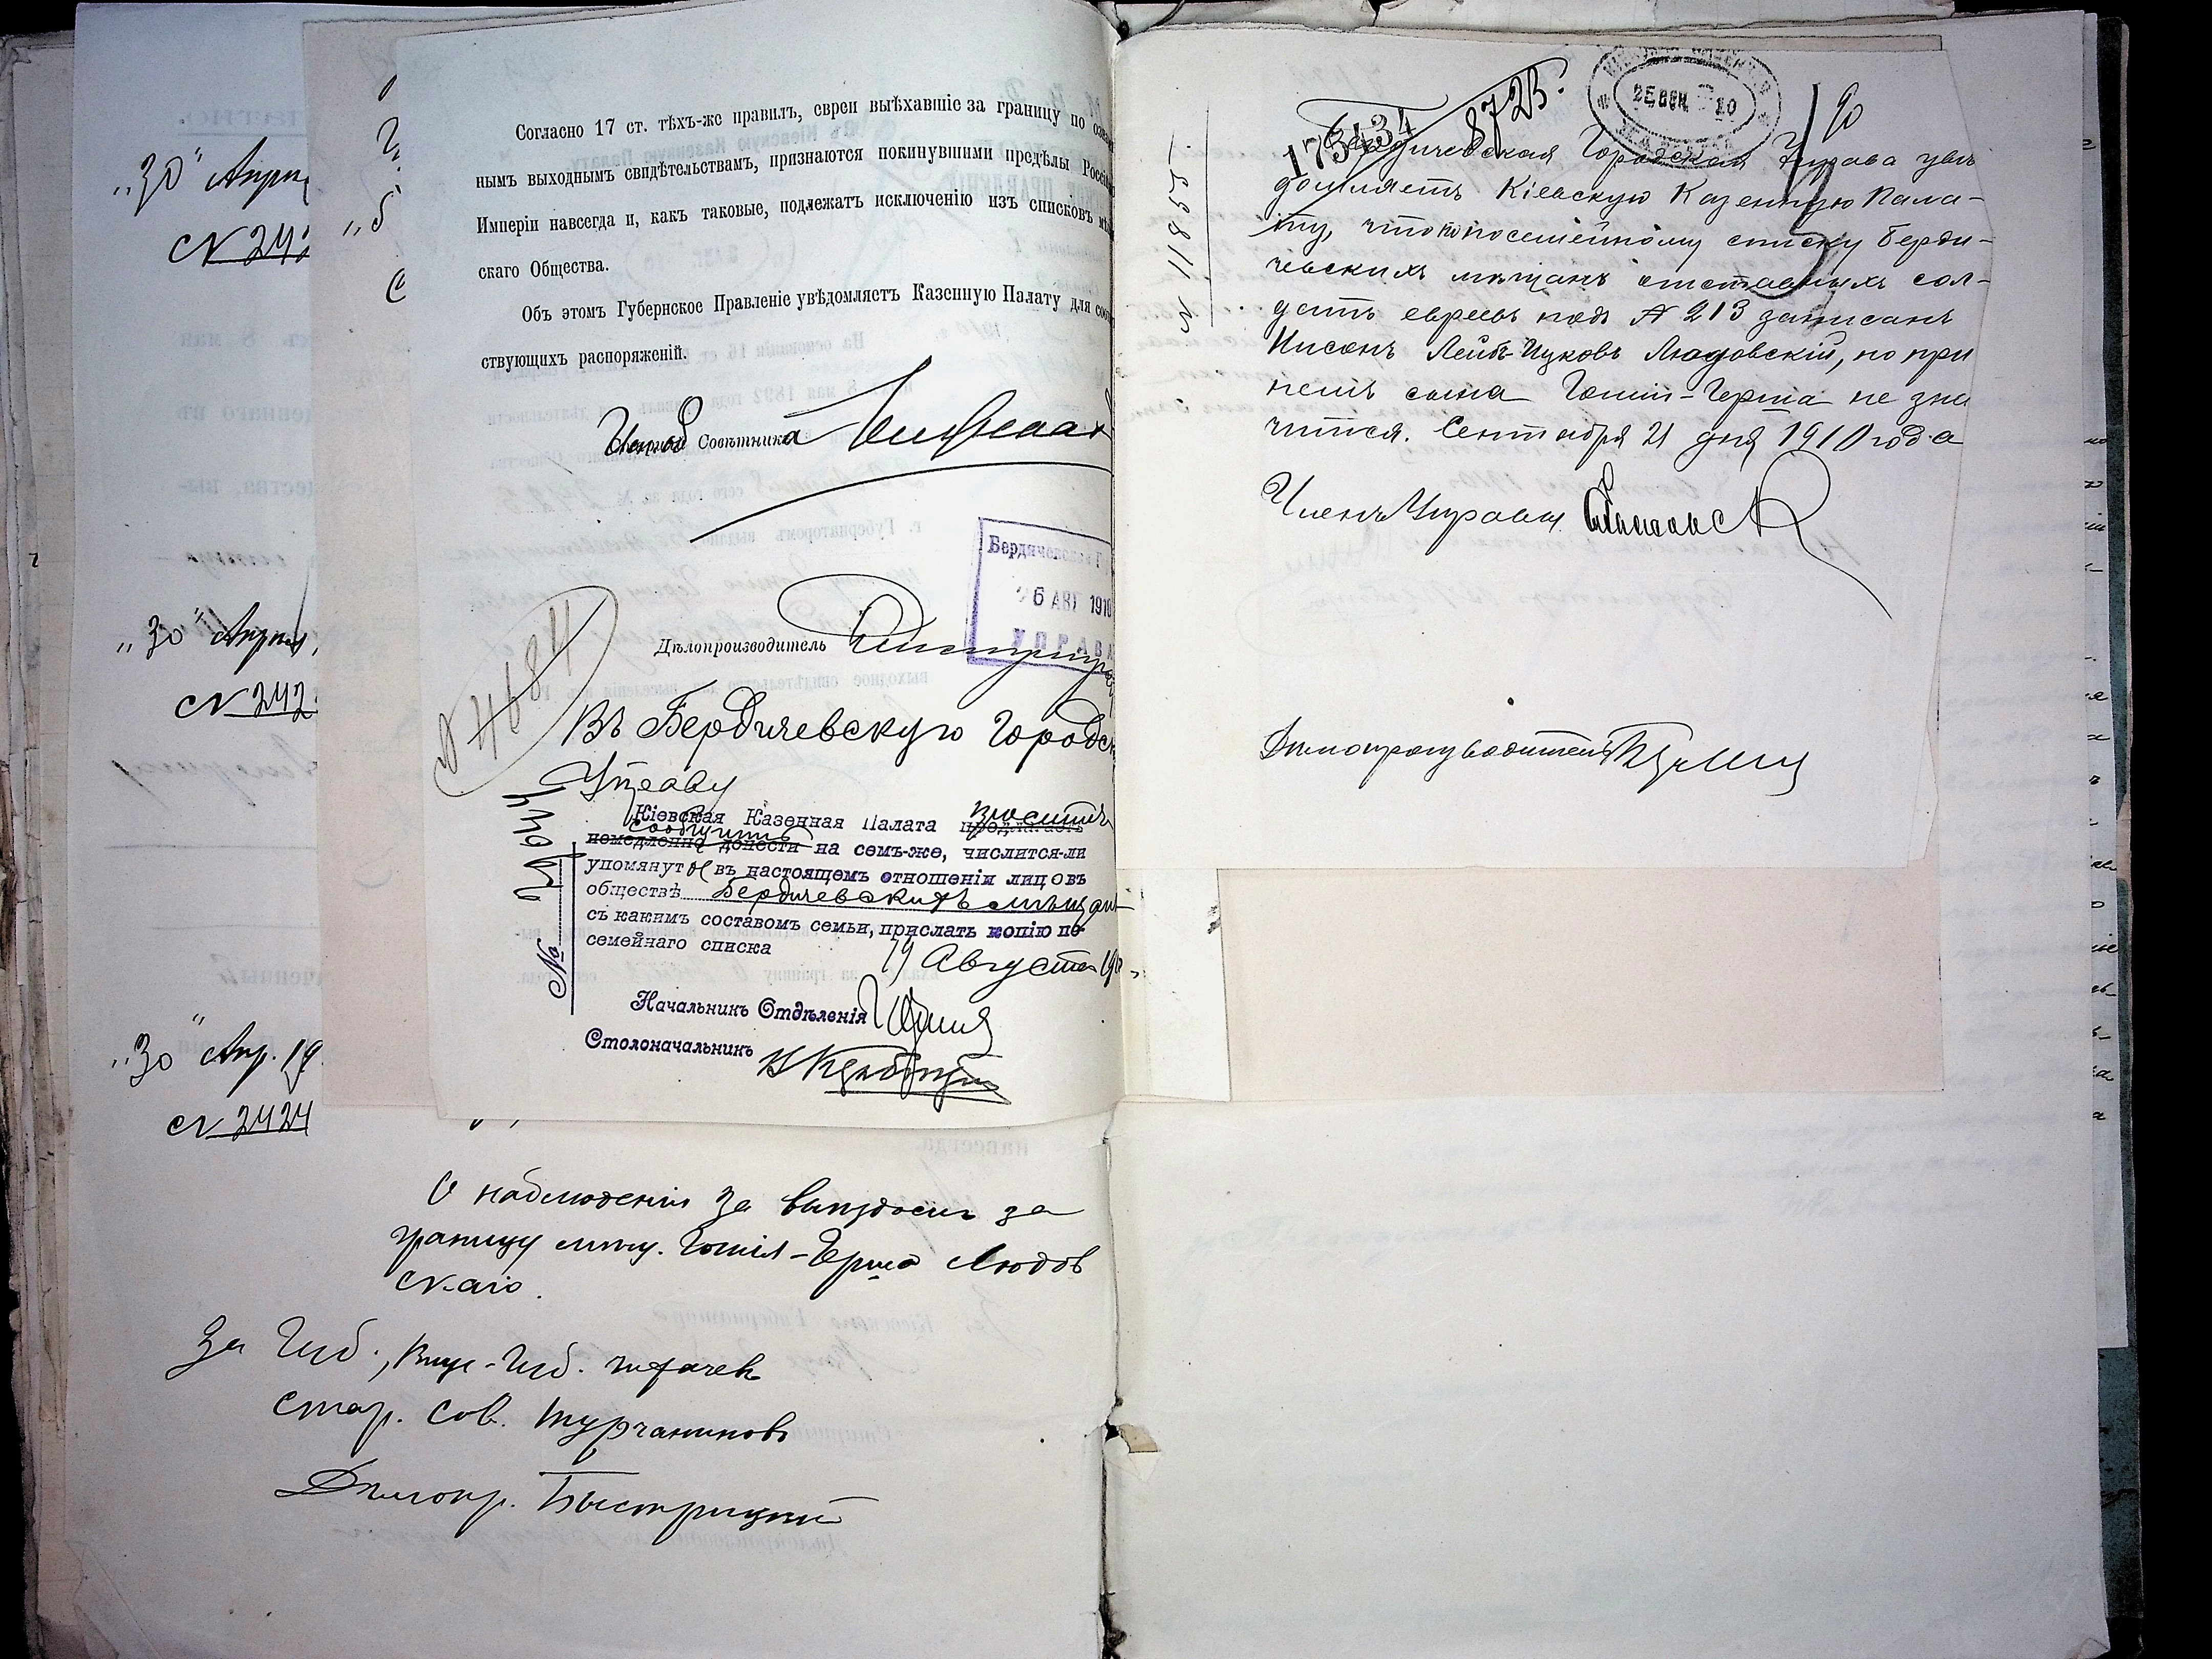 „30" Апрѣ
№ 242
„30" Апрѣля
№ 242
„30" Апр. 19
№ 2424
Согласно 17 ст. тѣхъ-же правилъ, евреи выѣхавшіе за границу по
нымъ выходнымъ свидѣтельствамъ, признаются покинувшими предѣлы Россі
Имперіи навсегда и, какъ таковые, подлежатъ исключенію изъ списковъ
скаго Общества.
Объ этомъ Губернское Правленіе увѣдомляетъ Казенную Палату для соо
ствующихъ распоряженій.
Совѣтника
Бердичевская Г
26 АВГ 1910
УПРАВА
Дѣлопроизводитель
№ 4684
Въ Бердичевскую Городск
Управу
Кіевская Казенная Палата проситъ
сообщить
немедленно донести на семъ-же, числится-ли
упомянутые въ настоящемъ отношеніи лицовъ
обществѣ Бердичевскихъ мѣщанъ
съ какимъ составомъ семьи, прислать копію по-
семейнаго списка
19 Августа 19
№
Начальникъ Отдѣленія
Столоначальникъ
О наблюденіи за выѣздомъ за
границу мѣщ. Гошія-Герша Людов
скаго.
За Губ., Вице-Губ. Чихачевъ
Стар. Сов. Турчаниновъ
Дѣлопр. Быстрицкій
173434
8723.
25 СЕН 10
90
№ 11855
Бердичевская Городская Управа увѣ
домляетъ Кіевскую Казенную Пала-
ту, что по посемейному списку Берди-
чевскихъ мѣщанъ отставныхъ сол-
датъ евреевъ подъ № 213 записанъ
Нисонъ Лейбъ-Ицковъ Людовскій, но при
немъ сына Гошія-Герша не зна
чится. Сентября 21 дня 1910 года
Членъ Управы
Дѣлопроизводитель